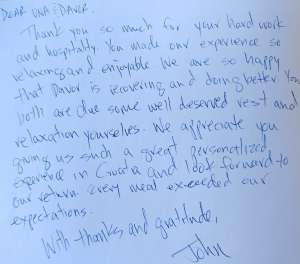 DEAR UNA & DAVOR.
Thank you so much for your hard work
and hospitality. You made our experience so
relaxing and enjoyable We are so happy
that Davor is recovering and doing better You
both are due some well deserved rest and
relaxation yourselves. We appreciate you
giving us such a great personalized
experience in Croatia and look forward to
our return every meal exceeded our
expectations.
With thanks and gratitude,
John